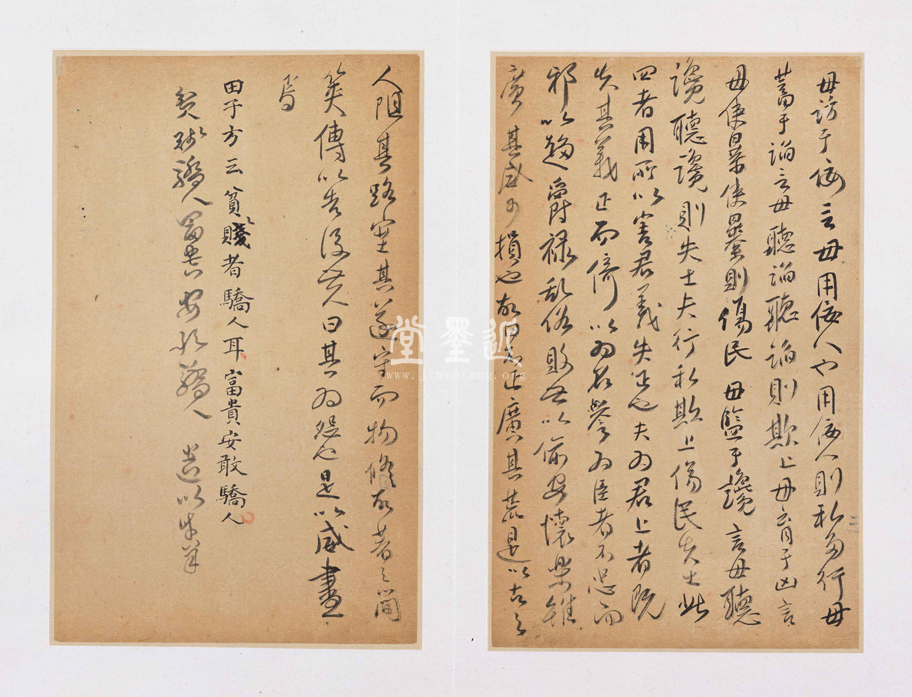 毋訪于佞言毋用佞人也用佞人則私多行毋
蓄于諂言毋聽諂聽諂則欺上毋育于凶言
毋使暴使暴則傷民毋監于讒言毋聽
讒聽讒則失士夫行私欺上傷民失士此
四者用所以害君義失正也夫为君上者既
失其義正而倚以为名譽为臣者不忠而
邪以趨爵祿乱俗敗世以偷安懷樂雖
廣其威可損也故曰不正廣其荒是以古之
人阻其路塞其遂守而物修故著之簡
筴傳以告後世人曰其为怨也是以威盡
焉
田子方云貧賤者驕人耳富貴安敢驕人
貧賤驕人富貴安敢驕人
近墨堂
www.jinmotang.org